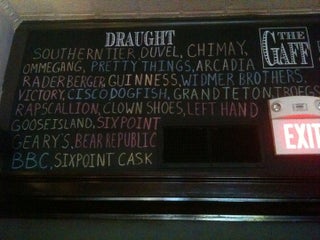 DRAUGHT
THE
GAFF
SOUTHERN TIER, DUVEL, CHIMAY,
OMMEGANG, PRETTY THINGS, ARCADIA
RADERBERGER, GUINNESS, WIDMER BROTHERS,
VICTORY, CISCO, DOGFISH, GRAND TETON, TROEGS
RAPSCALLION, CLOWN SHOES, LEFT HAND
GOOSE ISLAND, SIXPOINT
GEARY'S, BEAR REPUBLIC
BBC, SIXPOINT CASK
EXIT